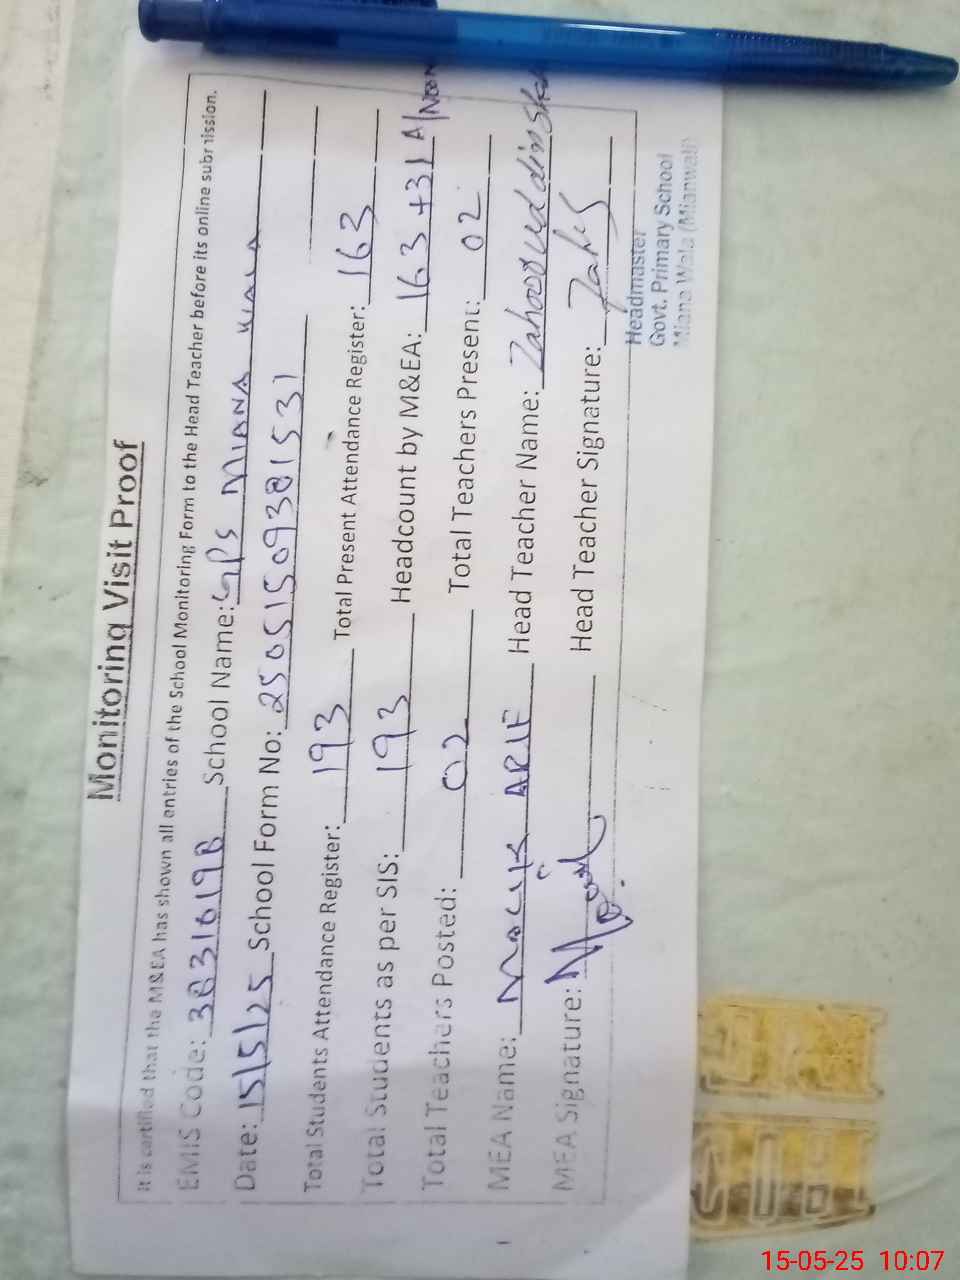 Monitoring Visit Proof
It is certified that the M&EA has shown all entries of the School Monitoring Form to the Head Teacher before its online submission.
EMIS Code: 38310198 School Name: GPS MIANA WALA
Date: 15/5/25 School Form No: 25051509381531
Total Students Attendance Register: 193 Total Present Attendance Register: 163
Total Students as per SIS: 193 Headcount by M&EA: 163 + 31 A/Noor
Total Teachers Posted: 02 Total Teachers Present: 02
MEA Name: MALIK ARIF Head Teacher Name: Zahooruddin
MEA Signature: Head Teacher Signature:
Headmaster
Govt. Primary School
Miana Wala (Mianwali)
15-05-25 10:07